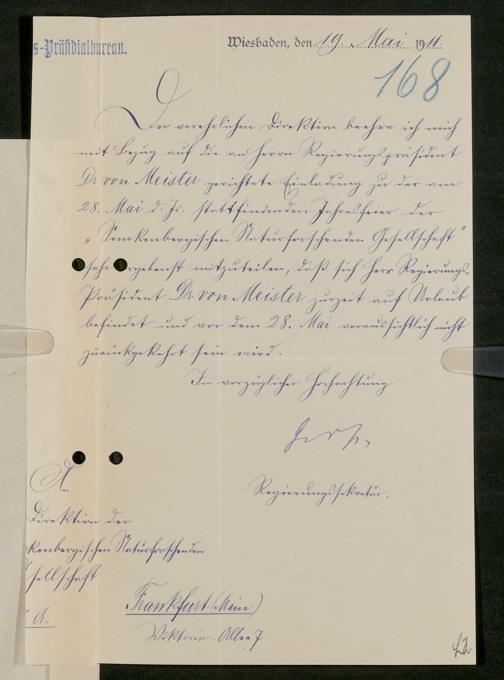 s-Präsidialbureau.
Wiesbaden, den 19. Mai 1911.
168
Der verehrlichen Direktion beehre ich mich
mit Bezug auf die an Herrn Regierungspräsident
Dr von Meister gerichtete Einladung zu der am
28. Mai d. Js. stattfindenden Jahresfeier der
„Senckenbergischen Naturforschenden Gesellschaft"
sehr ergebenst mitzuteilen, daß sich Herr Regierungs-
Präsident Dr von Meister zurzeit auf Urlaub
befindet und vor dem 28. Mai voraussichtlich nicht
zurückgekehrt sein wird.
In vorzüglicher Hochachtung
Regierungssekretär.
A.
Direktion der
kenbergischen Naturforschenden
sellschaft
Frankfurt (Main)
Viktoria-Allee 7.